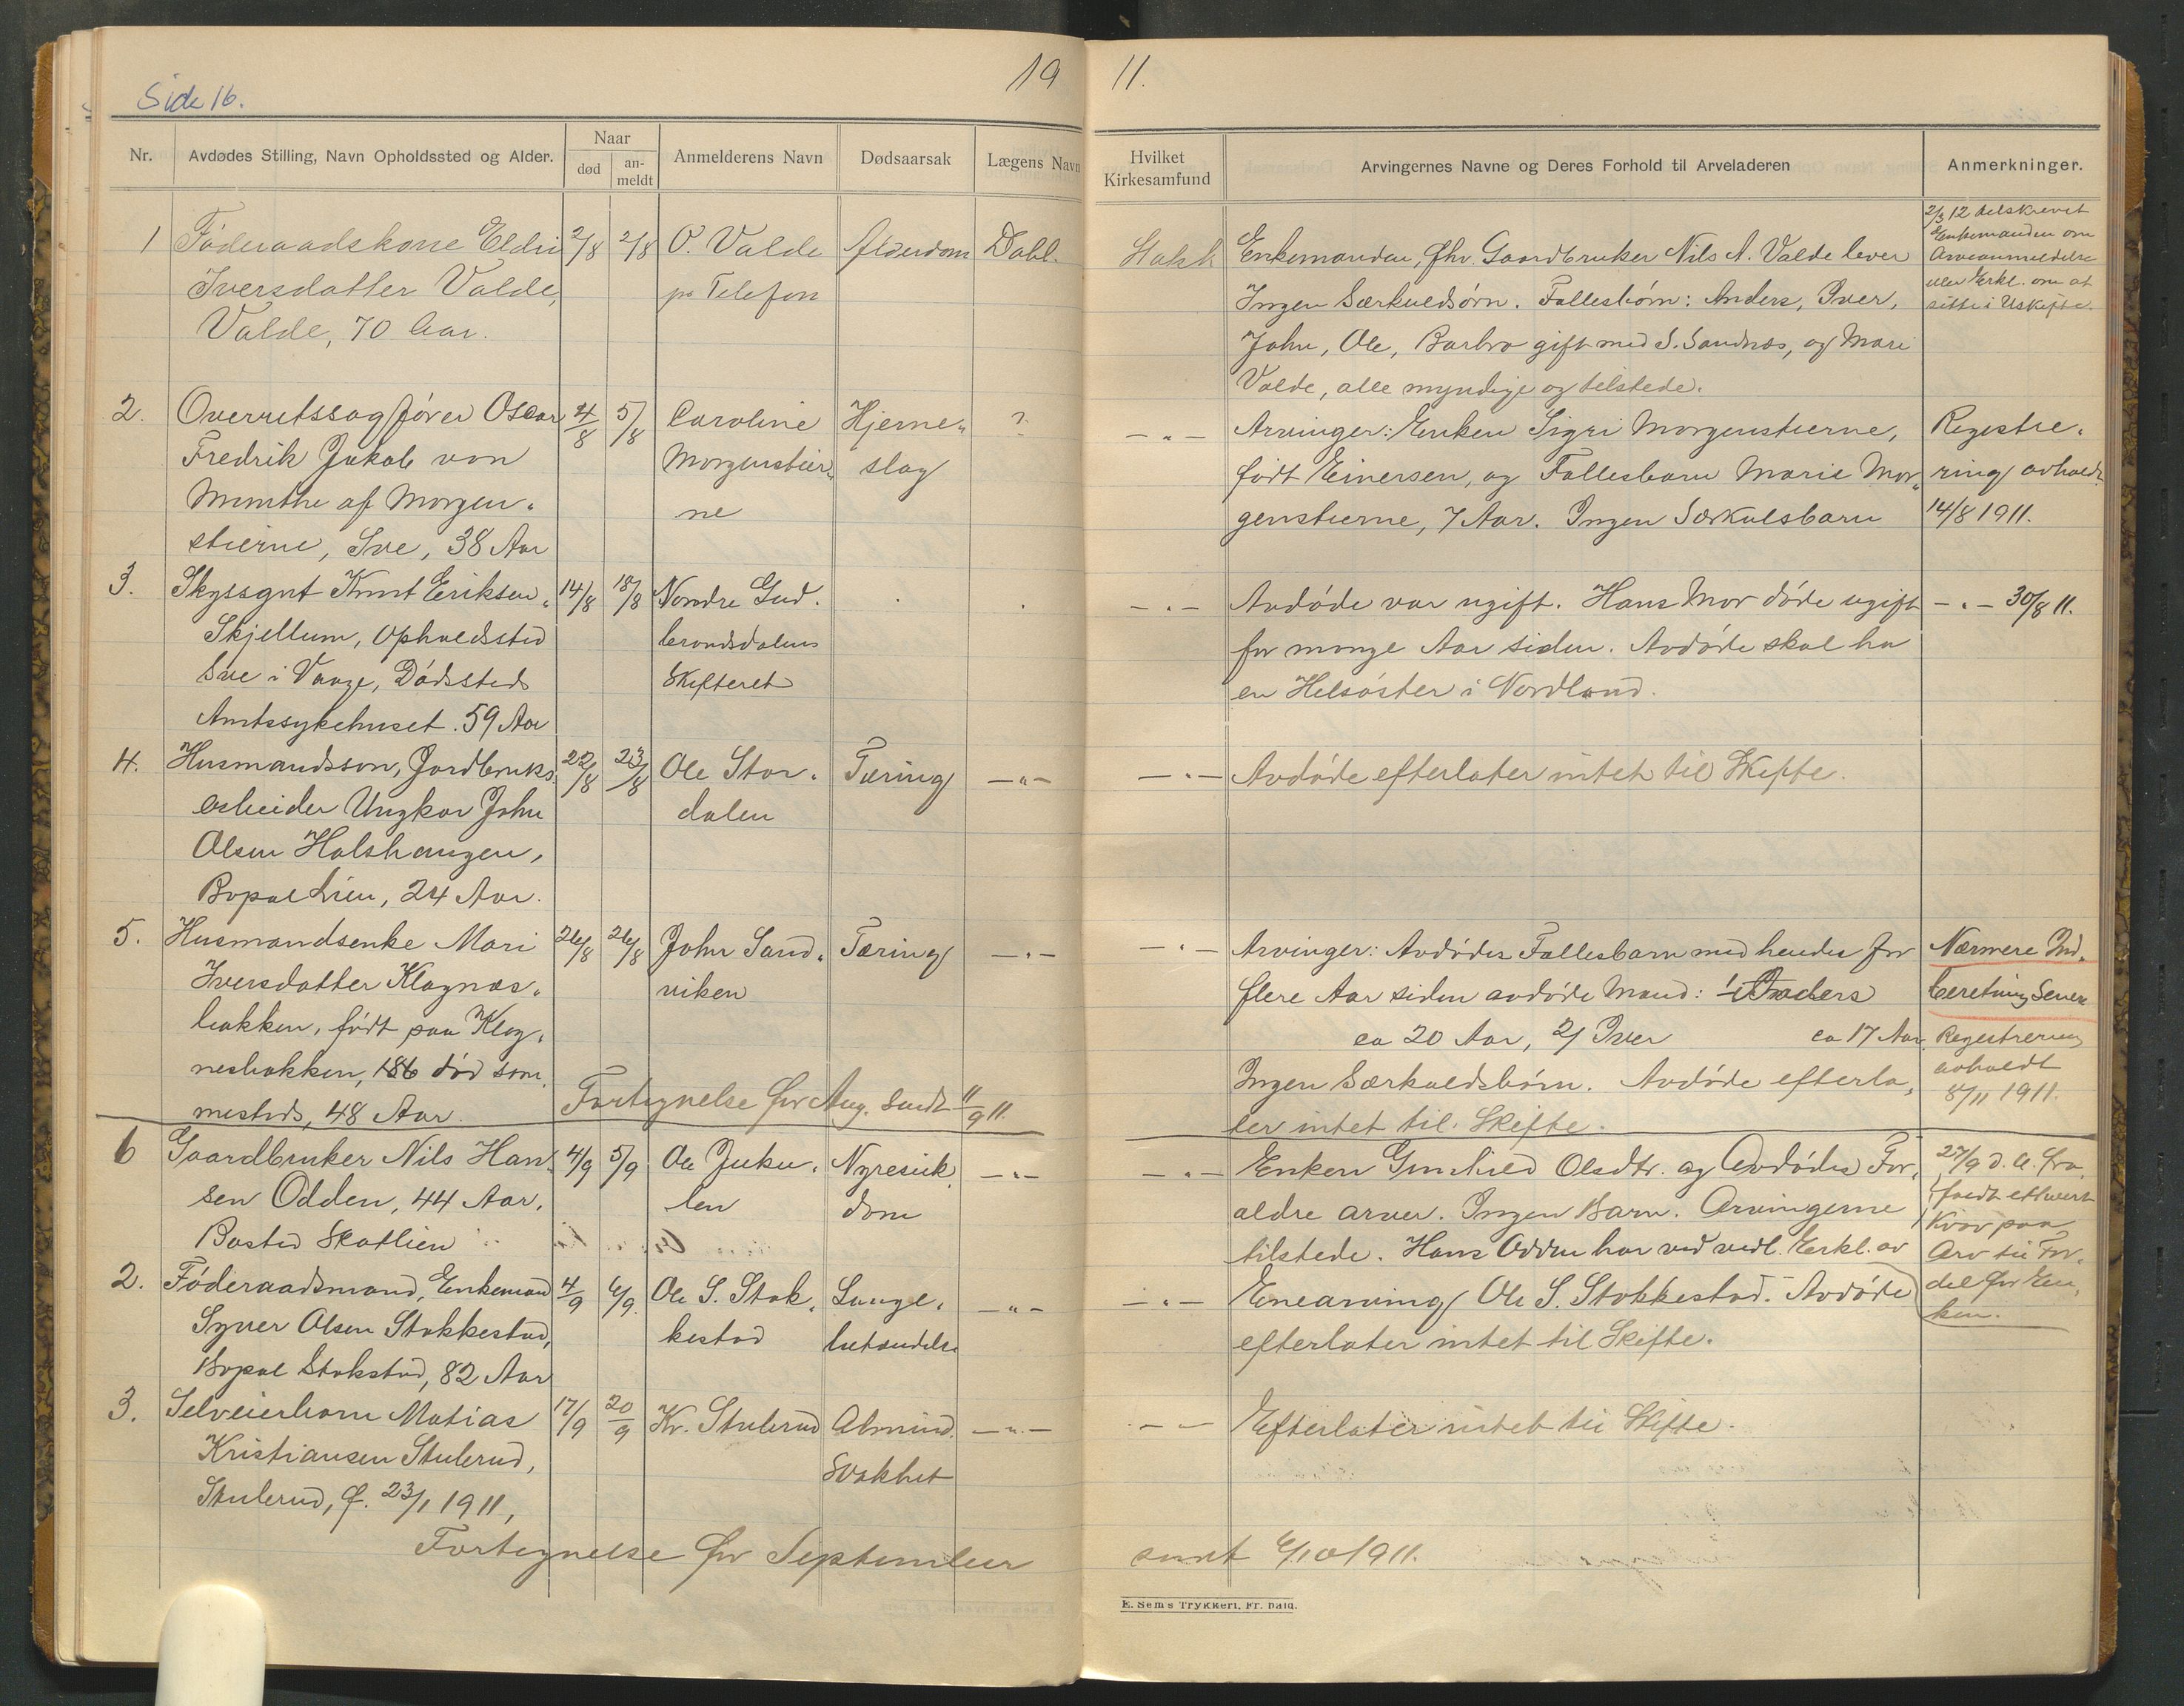 Side 16.
19
11.
Nr.
Avdødes Stilling, Navn Opholdssted og Alder.
Naar
død
an-
meldt
Anmelderens Navn
Dødsaarsak
Lægens Navn
Hvilket
Kirkesamfund
Arvingernes Navne og Deres Forhold til Arveladeren
Anmerkninger.
1
Føderaadskone Eldri
Iversdatter Valde,
Valde, 70 Aar.
2/8
2/8
O. Valde
pr Telefon
Alderdom
Dahl.
Enkemanden, fhv. Gaardbruker Nils A. Valde lever
Ingen Særkuldsørn. Fællesbørn: Anders, Iver,
John, Ole, Barbro gift med S. Sandnæs, og Mari
Valde, alle myndige og tilstede.
2/3 12 tilskrevet
Enkemanden om
Arveanmeldelse
eller Erkl. om at
sitte i Uskifte.
2.
Overretssagfører Oscar
Fredrik Jakob von
Munthe af Morgen-
stierne, Sve, 38 Aar
4/8
5/8
Caroline
Morgenstier-
ne
Hjerne-
slag
?
- " -
Arvinger: Enken Sigri Morgenstierne,
født Einersen, og Fællesbarn Marie Mor-
genstierne, 7 Aar. Ingen Særkulsbarn
Registre-
ring avholdt
14/8 1911.
3.
Skyssgut Knut Eriksen
Skjellum, Opholdssted
Sve i Vaage, Dødssted
Amtssykehuset. 59 Aar
14/8
18/8
Nordre Gud-
brandsdalens
Skifteret
- " -
Avdøde var ugift. Hans Mor døde ugift
for mange Aar siden. Avdøde skal ha
en Helsøster i Nordland.
- " - 30/8 11.
4.
Husmandssøn, Jordbruks-
arbeider Ungkar John
Olsen Holshaugen,
Bopæl Lien, 24 Aar.
22/8
23/8
Ole Stor-
dalen
Tæring
- " -
- " -
Avdøde efterlater intet til Skifte.
5.
Husmandsenke Mari
Iversdatter Klagnæs-
bakken, født paa Klag-
nesbakken, 186 død sam-
mesteds, 48 Aar.
26/8
26/8
John Sand-
viken
Tæring
- " -
- " -
Arvinger: Avdødes Fællesbarn med hendes for
flere Aar siden avdøde Mand: 1/ Anders
ca 20 Aar, 2/ Iver ca 17 Aar.
Ingen Særkuldsbørn. Avdøde efterla-
ter intet til Skifte.
Nærmere Ind-
beretning senere
Registrering
avholdt
8/11 1911.
Fortegnelse for Aug. sendt 11/9 11.
6
Gaardbruker Nils Han-
sen Odden, 44 Aar.
Bosted Skotlien
4/9
5/9
Ole Juku-
len
Nyresuk
dom
- " -
- " -
Enken Gunhild Olsdtr. og Avdødes For-
ældre arver. Ingen Barn. Arvingerne
tilstede. Hans Odden har ved vedl. Erkl. av
27/9 d. A. fra-
faldt ethvert
Krav paa
Arv til For-
del for En-
ken.
2.
Føderaadsmand, Enkemand
Syver Olsen Stokkestad,
Bopæl Stokstad, 82 Aar
4/9
6/9.
Ole S. Stok-
kestad
Lunge-
betændelse
- " -
- " -
Enearving Ole S. Stokkestad. Avdøde
efterlater intet til Skifte.
3.
Selveierbarn Matias
Kristiansen Stulerud,
Stulerud, f. 23/1 1911,
17/9
20/9
Kr. Stulerud
Almind.
Svakhet
- " -
- " -
Efterlater intet til Skifte.
Fortegnelse for September
sendt 6/10 1911.
E. Sems Trykkeri, Fr. hald.